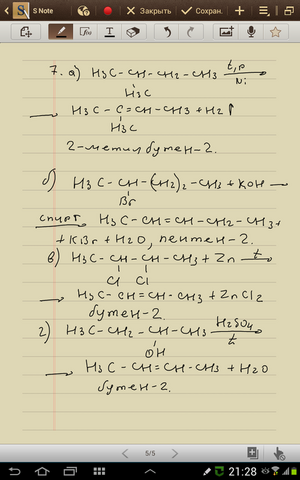 S Note
Закрыть
Сохран.
7. а) H3C-CH-CH2-CH3 t,p Ni
H3C
→ H3C-C=CH-CH3+H2↑
H3C
2-метил бутен-2.
б) H3C-CH-(CH2)2-CH3+KOH →
Br
спирт H3C-CH=CH-CH2-CH3+
+KBr+H2O, пентен-2.
в) H3C-CH-CH-CH3+Zn t→
Cl Cl
→ H3C-CH=CH-CH3+ZnCl2
бутен-2.
г) H3C-CH2-CH-CH3 H2SO4 t
OH
→ H3C-CH=CH-CH3+H2O
бутен-2.
5/5
21:28